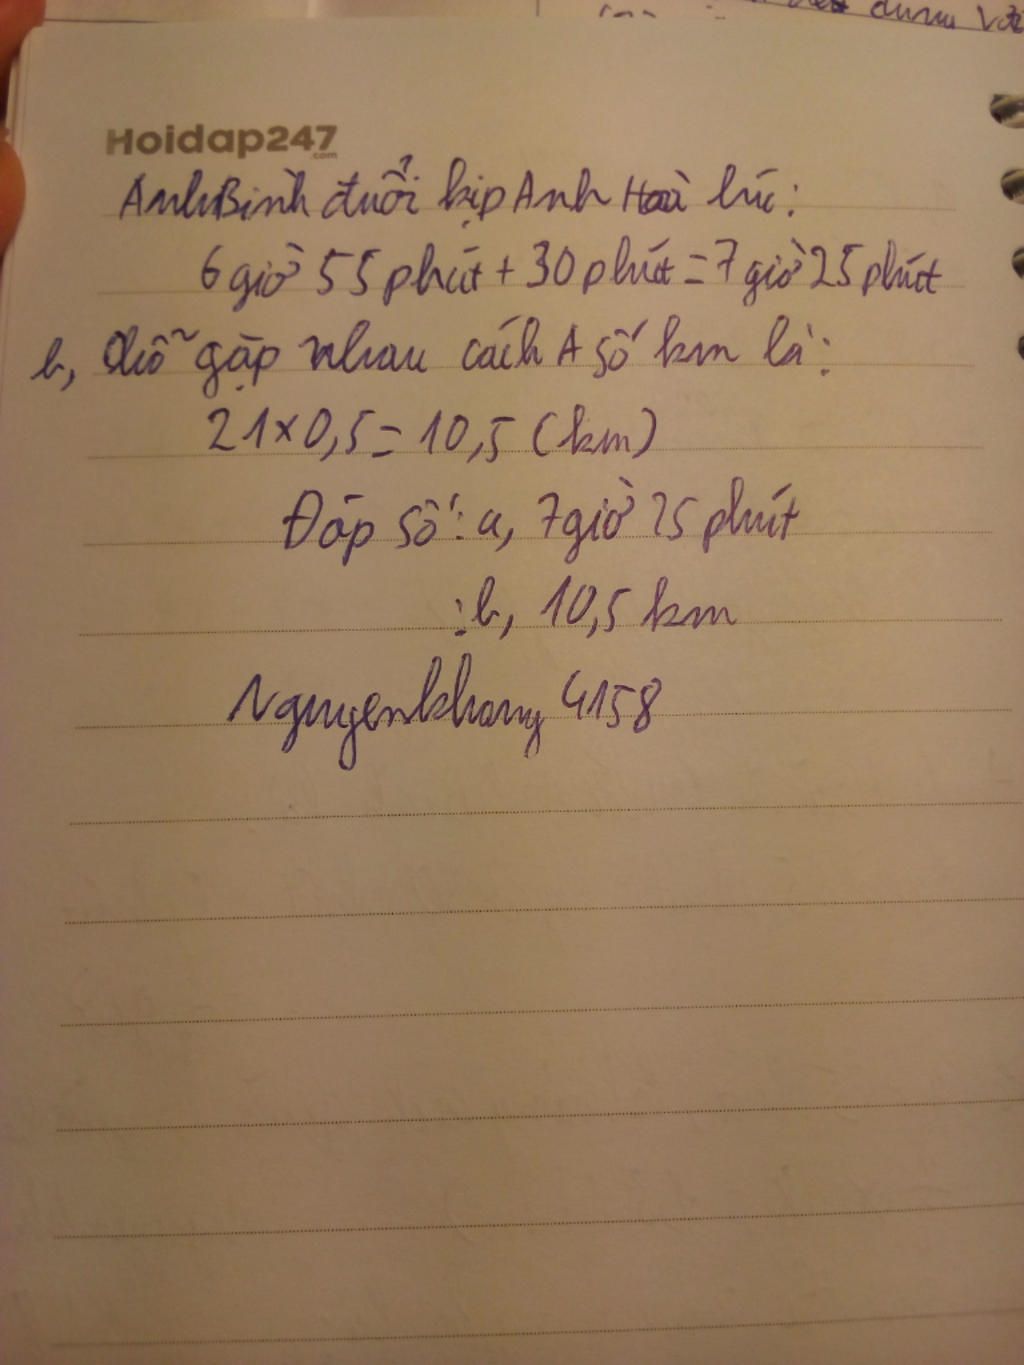 dum vơ
Hoidap247
.com
Anh Bình đuổi kịp Anh Hoà lúc:
6 giờ 55 phút + 30 phút = 7 giờ 25 phút
b, Chỗ gặp nhau cách A số km là:
21 × 0,5 = 10,5 (km)
Đáp số: a, 7 giờ 25 phút
: b, 10,5 km
Nguyenkhang 4158